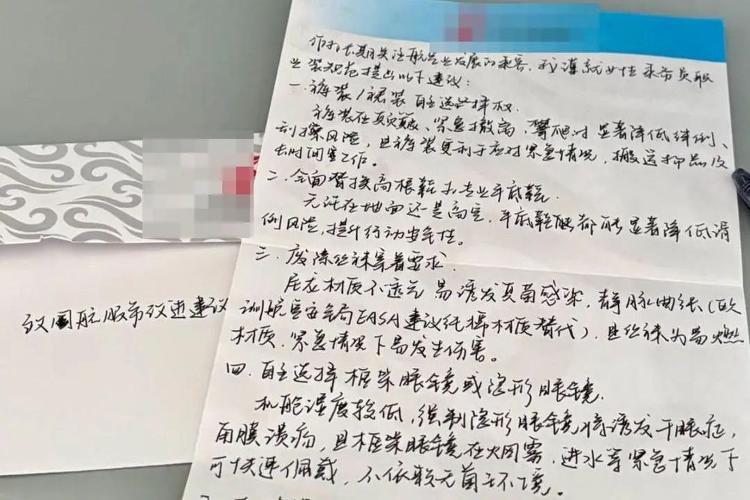 作为长期关注航空业发展的乘客，我谨就女性乘务员职
业装规范提出以下建议：
一.裤装/裙装自主选择权.
裤装在颠簸、紧急撤离，攀爬时显著降低绊倒、
刮擦风险，且裤装更利于应对紧急情况，搬运物品及
长时间客工作。
二.全面替换高根鞋为专业平底鞋.
无论在地面还是高空，平底鞋能都能显著降低滑
倒风险，提升行动安全性。
三.废除丝袜穿着要求.
尼龙材质不透气易诱发真菌感染，静脉曲张(欧
洲航空安全局EASA建议纯棉材质替代)，且丝袜为易燃
材质，紧急情况下易发生伤害。
四.自主选择框架眼镜或隐形眼镜.
机舱湿度较低，强制隐形眼镜将诱发干眼症，
角膜溃疡，且框架眼镜在火烟雾，进水等紧急情况下
可快速佩戴，不依赖无菌环境。
致国航服务改进建议